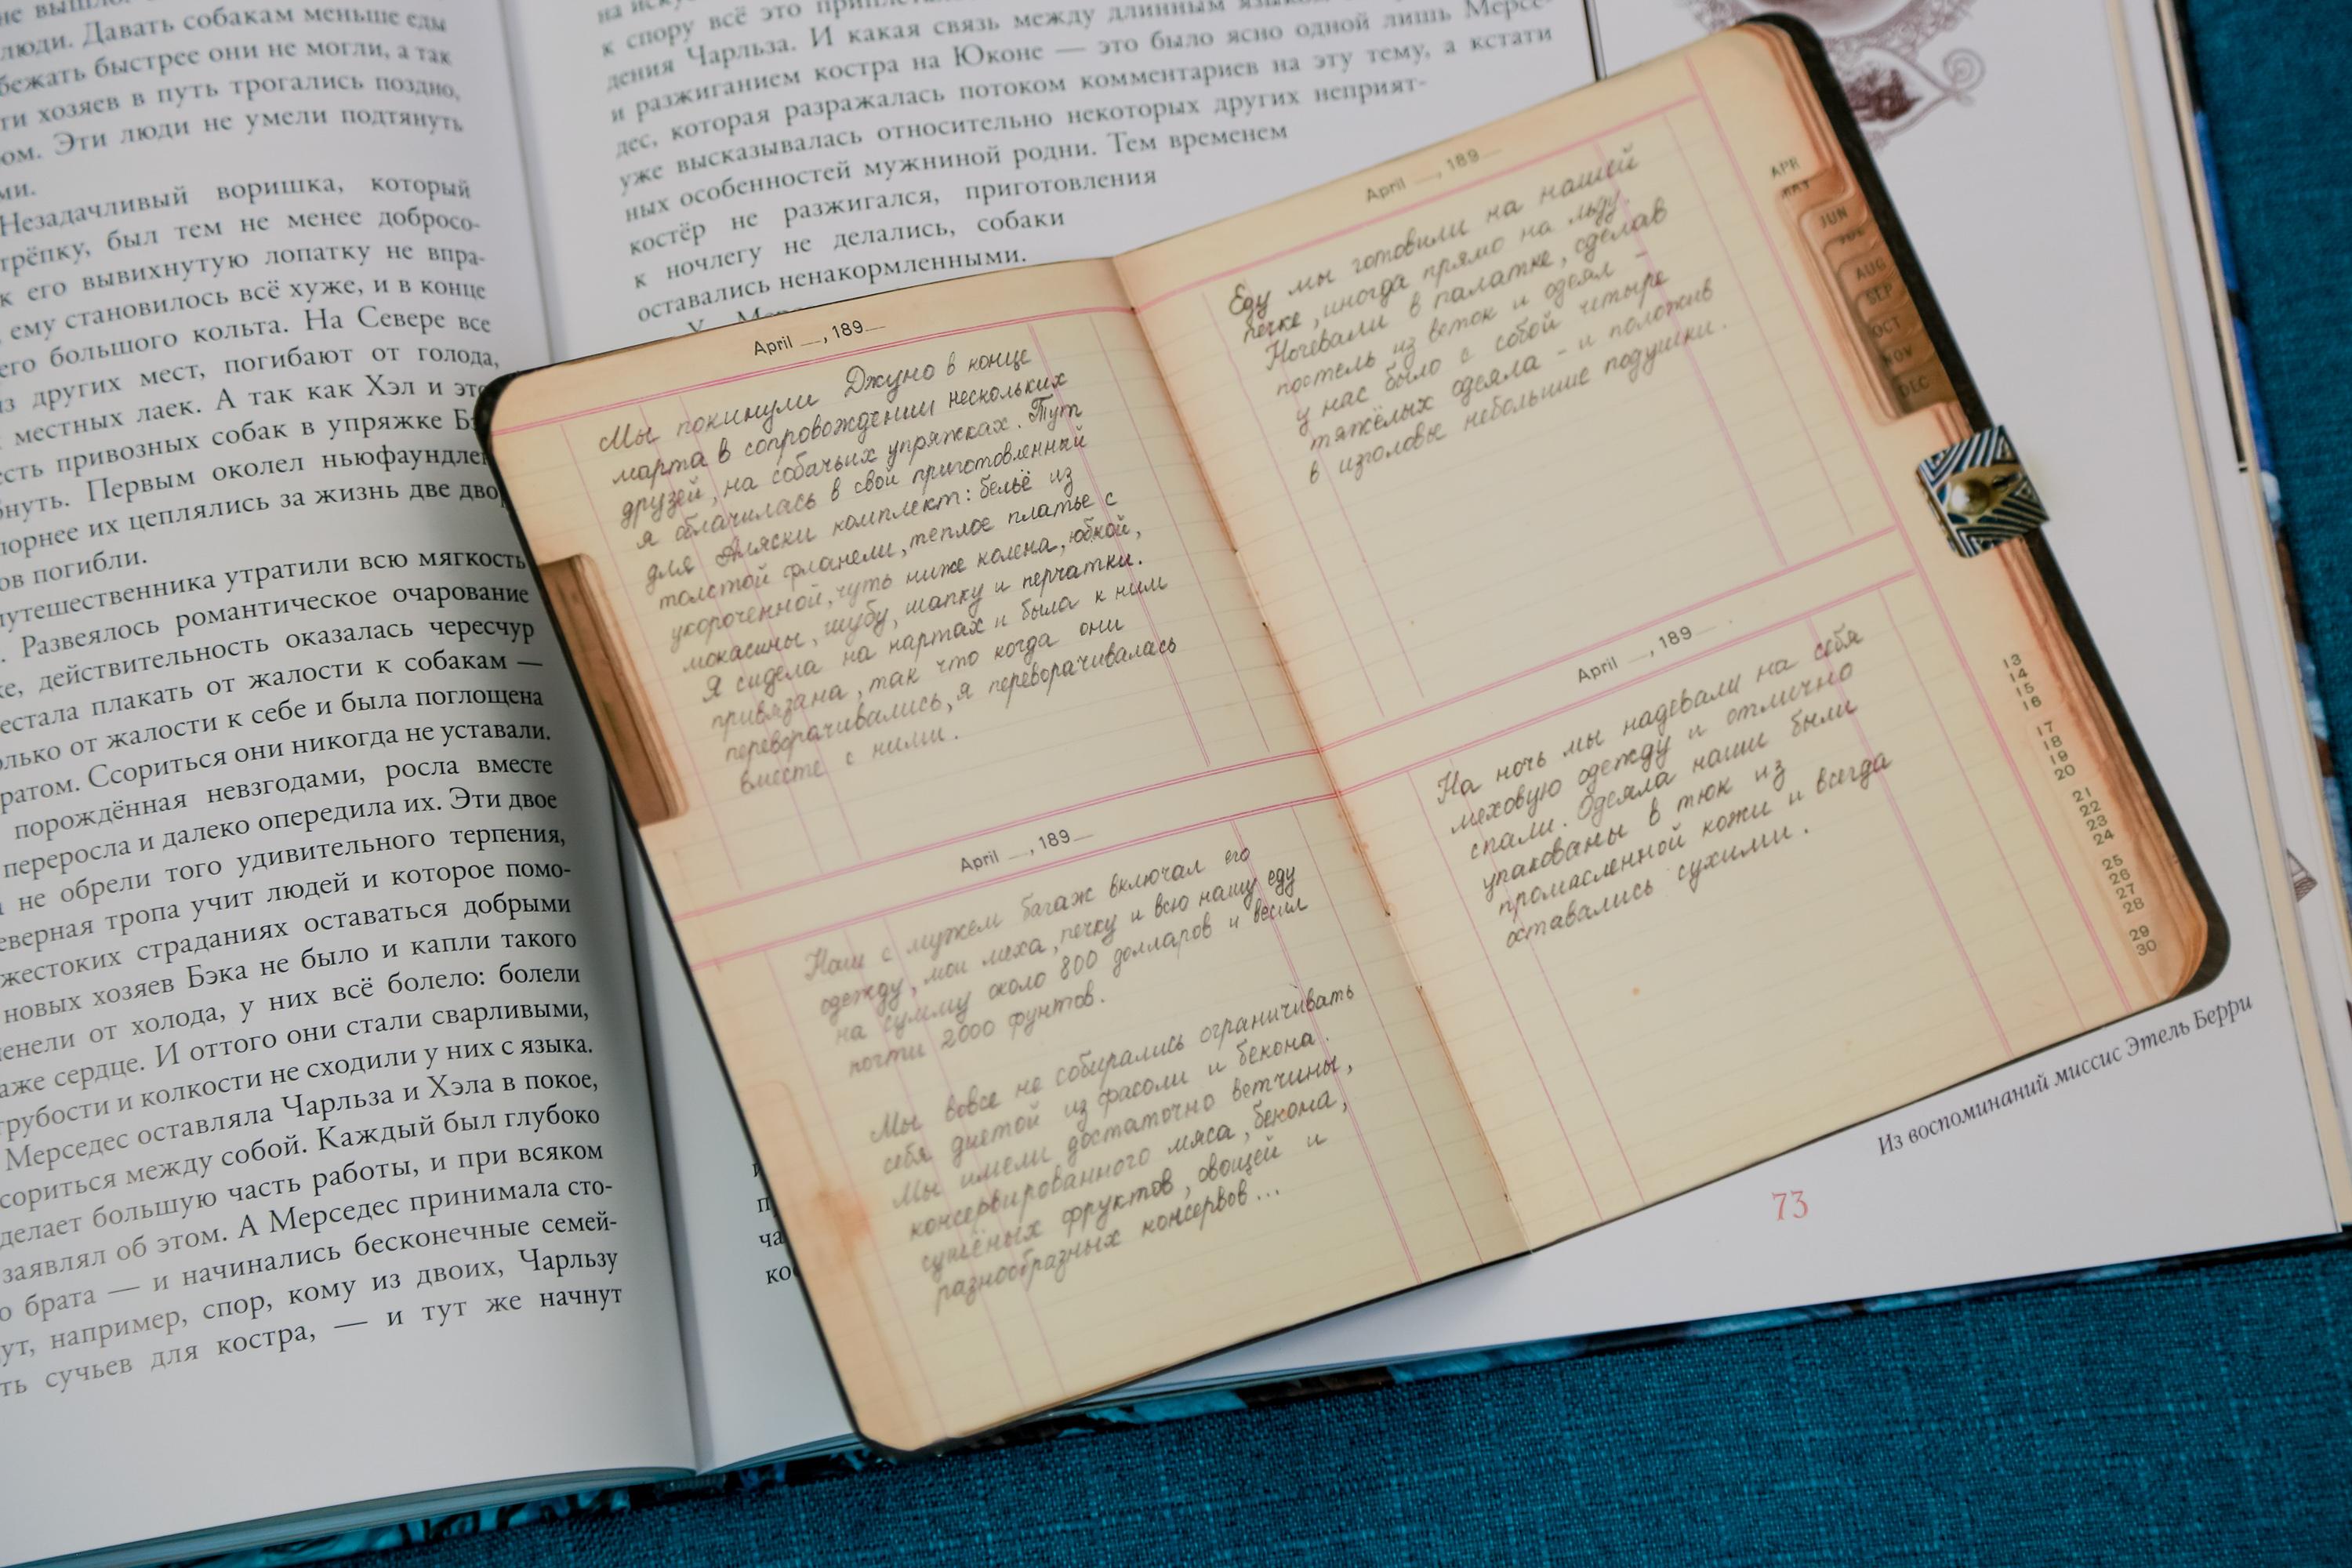 люди. Давать собакам меньше еды
бежать быстрее они не могли, а так
ти хозяев в путь трогались поздно,
ом. Эти люди не умели подтянуть
ми.
Незадачливый воришка, который
трёпку, был тем не менее добросо-
к его вывихнутую лопатку не впра-
, ему становилось всё хуже, и в конце
его большого кольта. На Севере все
из других мест, погибают от голода,
местных лаек. А так как Хэл и
есть привозных собак в упряжке
бнуть. Первым околел ньюфаундлен
порнее их цеплялись за жизнь две
ов погибли.
путешественника утратили всю мягкость
. Развеялось романтическое очарование
ке, действительность оказалась чересчур
естала плакать от жалости к собакам —
олько от жалости к себе и была поглощена
ратом. Ссориться они никогда не уставали.
порождённая невзгодами, росла вместе
переросла и далеко опередила их. Эти двое
не обрели того удивительного терпения,
еверная тропа учит людей и которое помо-
жестоких страданиях оставаться добрыми
новых хозяев Бэка не было и капли такого
енели от холода, у них всё болело: болели
аже сердце. И оттого они стали сварливыми,
грубости и колкости не сходили у них с языка.
Мерседес оставляла Чарльза и Хэла в покое,
сориться между собой. Каждый был глубоко
делает большую часть работы, и при всяком
заявлял об этом. А Мерседес принимала сто-
о брата — и начинались бесконечные семей-
ут, например, спор, кому из двоих, Чарльзу
ть сучьев для костра, — и тут же начнут
к спору всё это
дения Чарльза. И какая связь между длинным языком
и разжиганием костра на Юконе — это было ясно одной лишь Мерсе-
дес, которая разражалась потоком комментариев на эту тему, а кстати
уже высказывалась относительно некоторых других неприят-
ных особенностей мужниной родни. Тем временем
костёр не разжигался, приготовления
к ночлегу не делались, собаки
оставались ненакормленными.
April __, 189__
Мы покинули Джуно в конце
марта в сопровождении нескольких
друзей, на собачьих упряжках. Тут
я облачилась в свой приготовленный
для Аляски комплект: бельё из
толстой фланели, теплое платье с
укороченной, чуть ниже колена, юбкой,
мокасины, шубу, шапку и перчатки.
Я сидела на нартах и была к ним
привязана, так что когда они
переворачивались, я переворачивалась
вместе с ними.
April __, 189__
Наш с мужем багаж включал его
одежду, мои меха, печку и всю нашу еду
на сумму около 800 долларов и весил
почти 2000 фунтов.
Мы вовсе не собирались ограничивать
себя диетой из фасоли и бекона.
Мы имели достаточно ветчины,
консервированного мяса, бекона,
сушёных фруктов, овощей и
разнообразных консервов...
April __, 189__
Еду мы готовили на нашей
печке, иногда прямо на льду.
Ночевали в палатке, сделав
постель из веток и одеял -
у нас было с собой четыре
тяжёлых одеяла - и положив
в изголовье небольшие подушки.
April __, 189__
На ночь мы надевали на себя
меховую одежду и отлично
спали. Одеяла наши были
упакованы в тюк из
промасленной кожи и всегда
оставались сухими.
APR
MAY
JUN
JUL
AUG
SEP
OCT
NOV
DEC
13
14
15
16
17
18
19
20
21
22
23
24
25
26
27
28
29
30
Из воспоминаний миссис Этель Берри
73